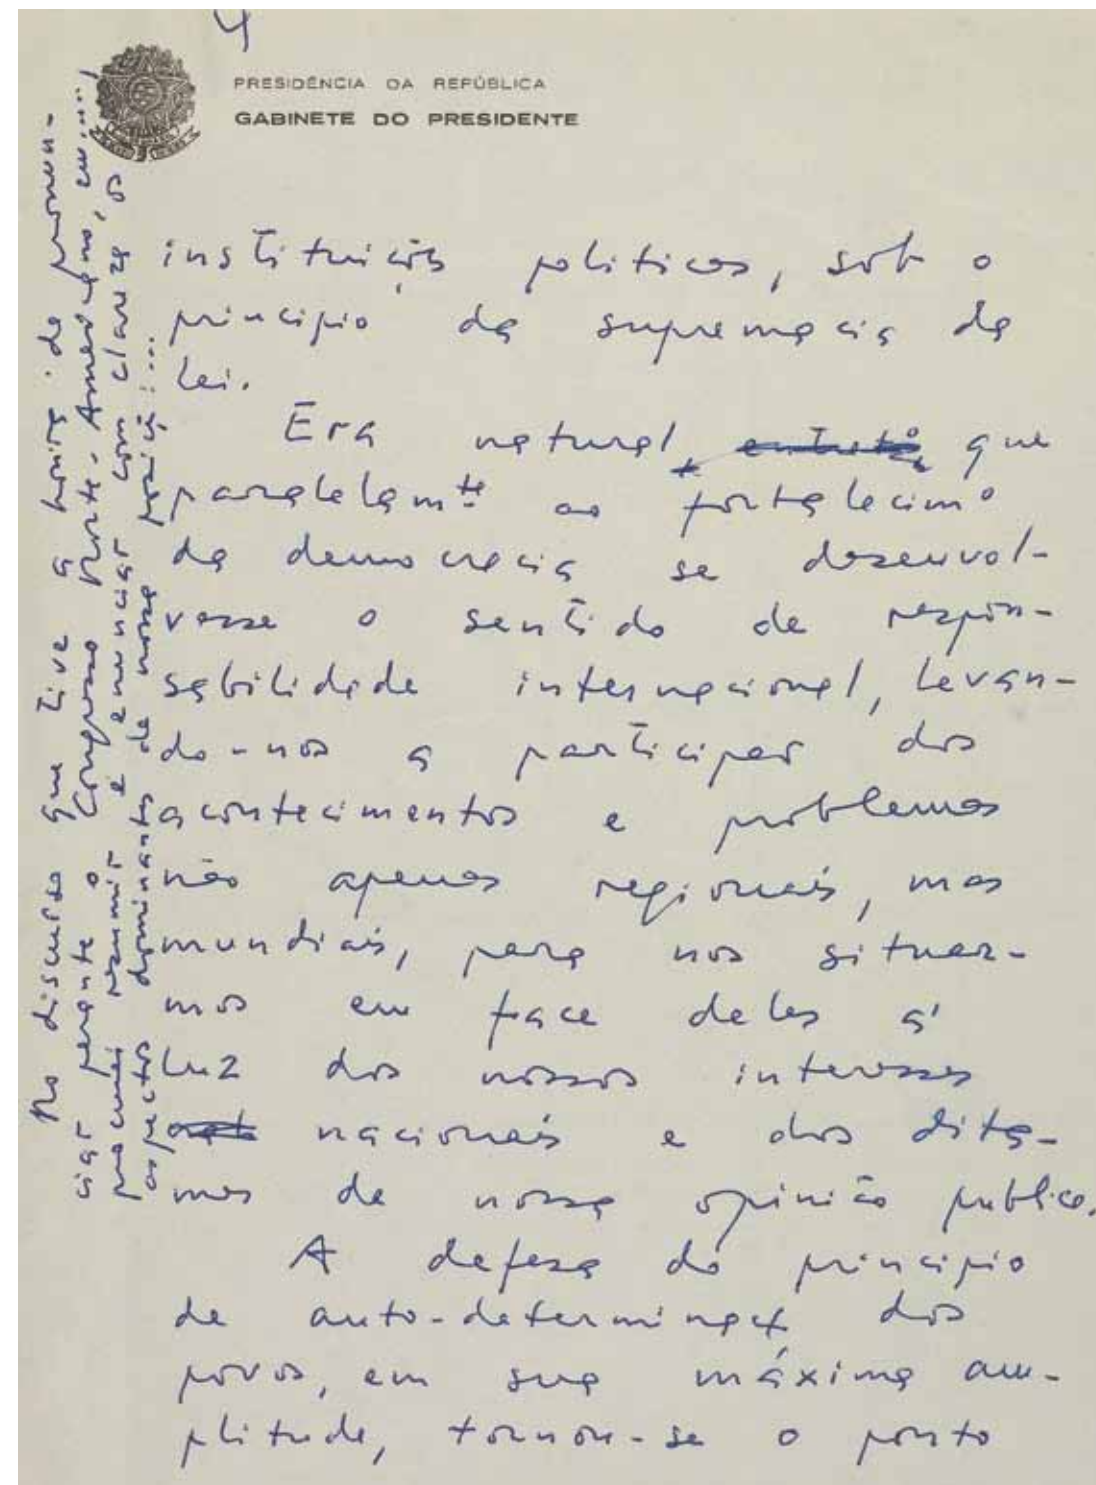 4
PRESIDÊNCIA DA REPÚBLICA
GABINETE DO PRESIDENTE
instituições politicas, sob o
principio da supremacia da
lei.
Era natural, que
paralelamte ao fortalecimo
da democracia se desenvol-
vesse o sentido de respon-
sabilidade internacional, levan-
do-nos a participar dos
acontecimentos e problemas
não apenas regionais, mas
mundiais, para nos situar-
mos em face deles á
luz dos nossos interesses
nacionais e dos dita-
mes de nossa opinião publica.
A defesa do principio
de auto-determinaç dos
povos, em sua máxima am-
plitude, tornou-se o ponto
No discurso que tive a honra de pronun-
ciar perante o Congresso Norte-Americano, em....,
procurei resumir e enunciar com clareza os
aspectos dominantes de nossa posiç:...